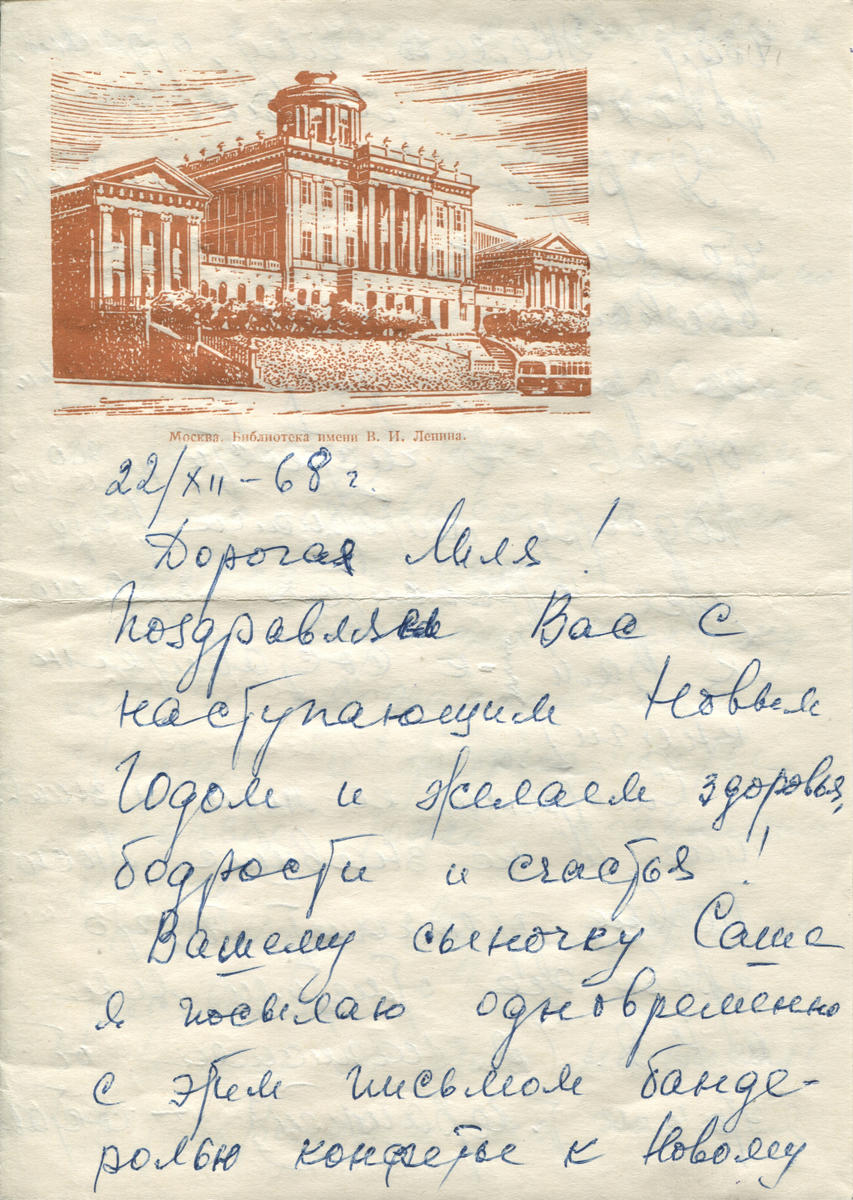 Москва. Библиотека имени В. И. Ленина.
22/XII-68 г.
Дорогая Миля!
Поздравляем Вас с
наступающим Новым
Годом и желаем здоровья,
бодрости и счастья!
Вашему сыночку Саше
я посылаю одновременно
с этим письмом банде-
ролью конфеты к Новому